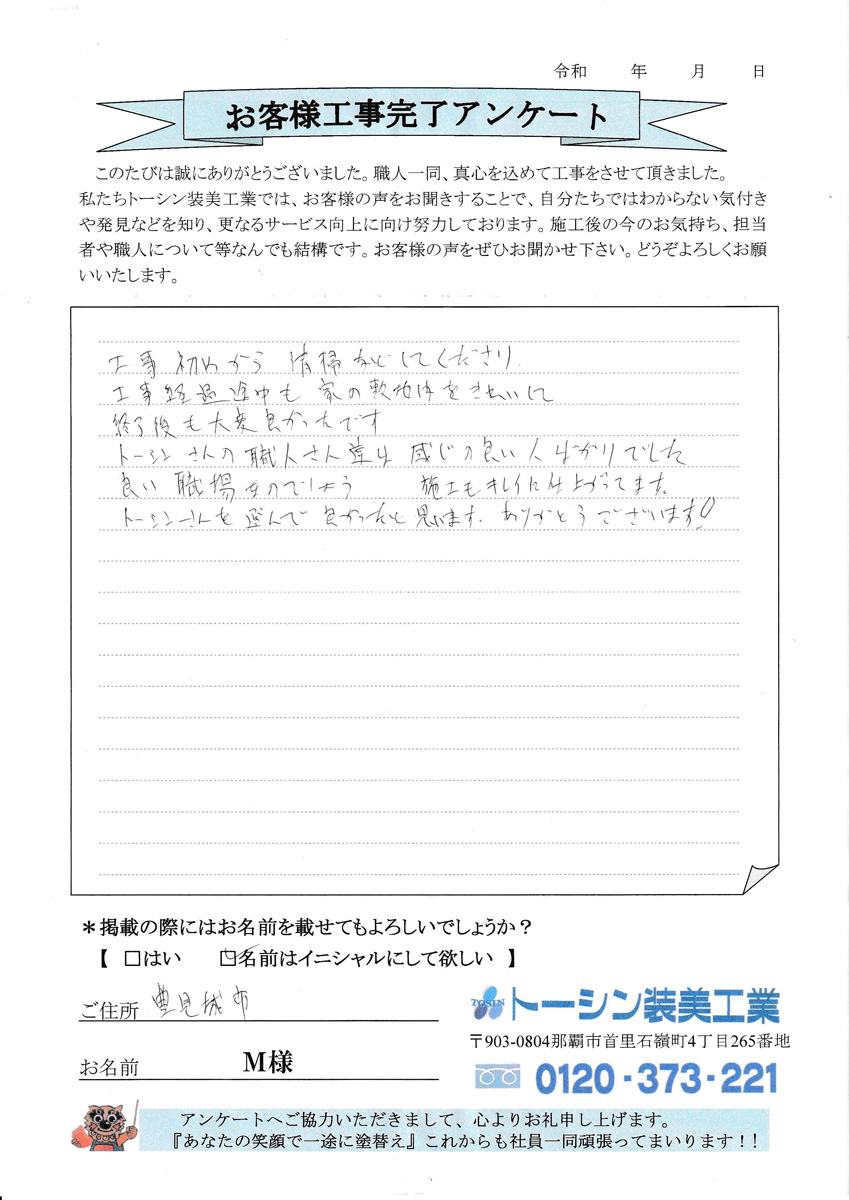 令和　　年　　月　　日
お客様工事完了アンケート
このたびは誠にありがとうございました。職人一同、真心を込めて工事をさせて頂きました。
私たちトーシン装美工業では、お客様の声をお聞きすることで、自分たちではわからない気付き
や発見などを知り、更なるサービス向上に向け努力しております。施工後の今のお気持ち、担当
者や職人について等なんでも結構です。お客様の声をぜひお聞かせ下さい。どうぞよろしくお願
いいたします。
工事 初めから 清掃などしてくださり
工事経過途中も 家の敷地内をきれいにして
終了後も大変良かったです
トーシンさんの職人さん達は 感じの良い人ばかりでした
良い職場なのでしょう　施工もキレイに仕上がってます。
トーシンさんを選んで良かったと思います。ありがとうございます!
＊掲載の際にはお名前を載せてもよろしいでしょうか？
【 □はい　☑名前はイニシャルにして欲しい 】
ご住所 豊見城市
TOSIN トーシン装美工業
〒903-0804那覇市首里石嶺町4丁目265番地
お名前　M様
0120-373-221
アンケートへご協力いただきまして、心よりお礼申し上げます。
『あなたの笑顔で一途に塗替え』これからも社員一同頑張ってまいります！！